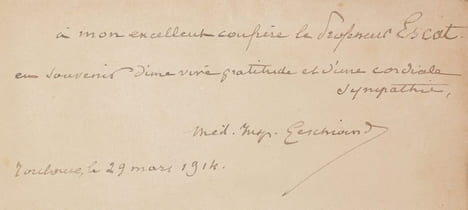 à mon excellent confrère le Professeur Escat.
en souvenir d'une vive gratitude et d'une cordiale
sympathie,
Méd. Insp.
Toulouse, le 29 mars 1914.